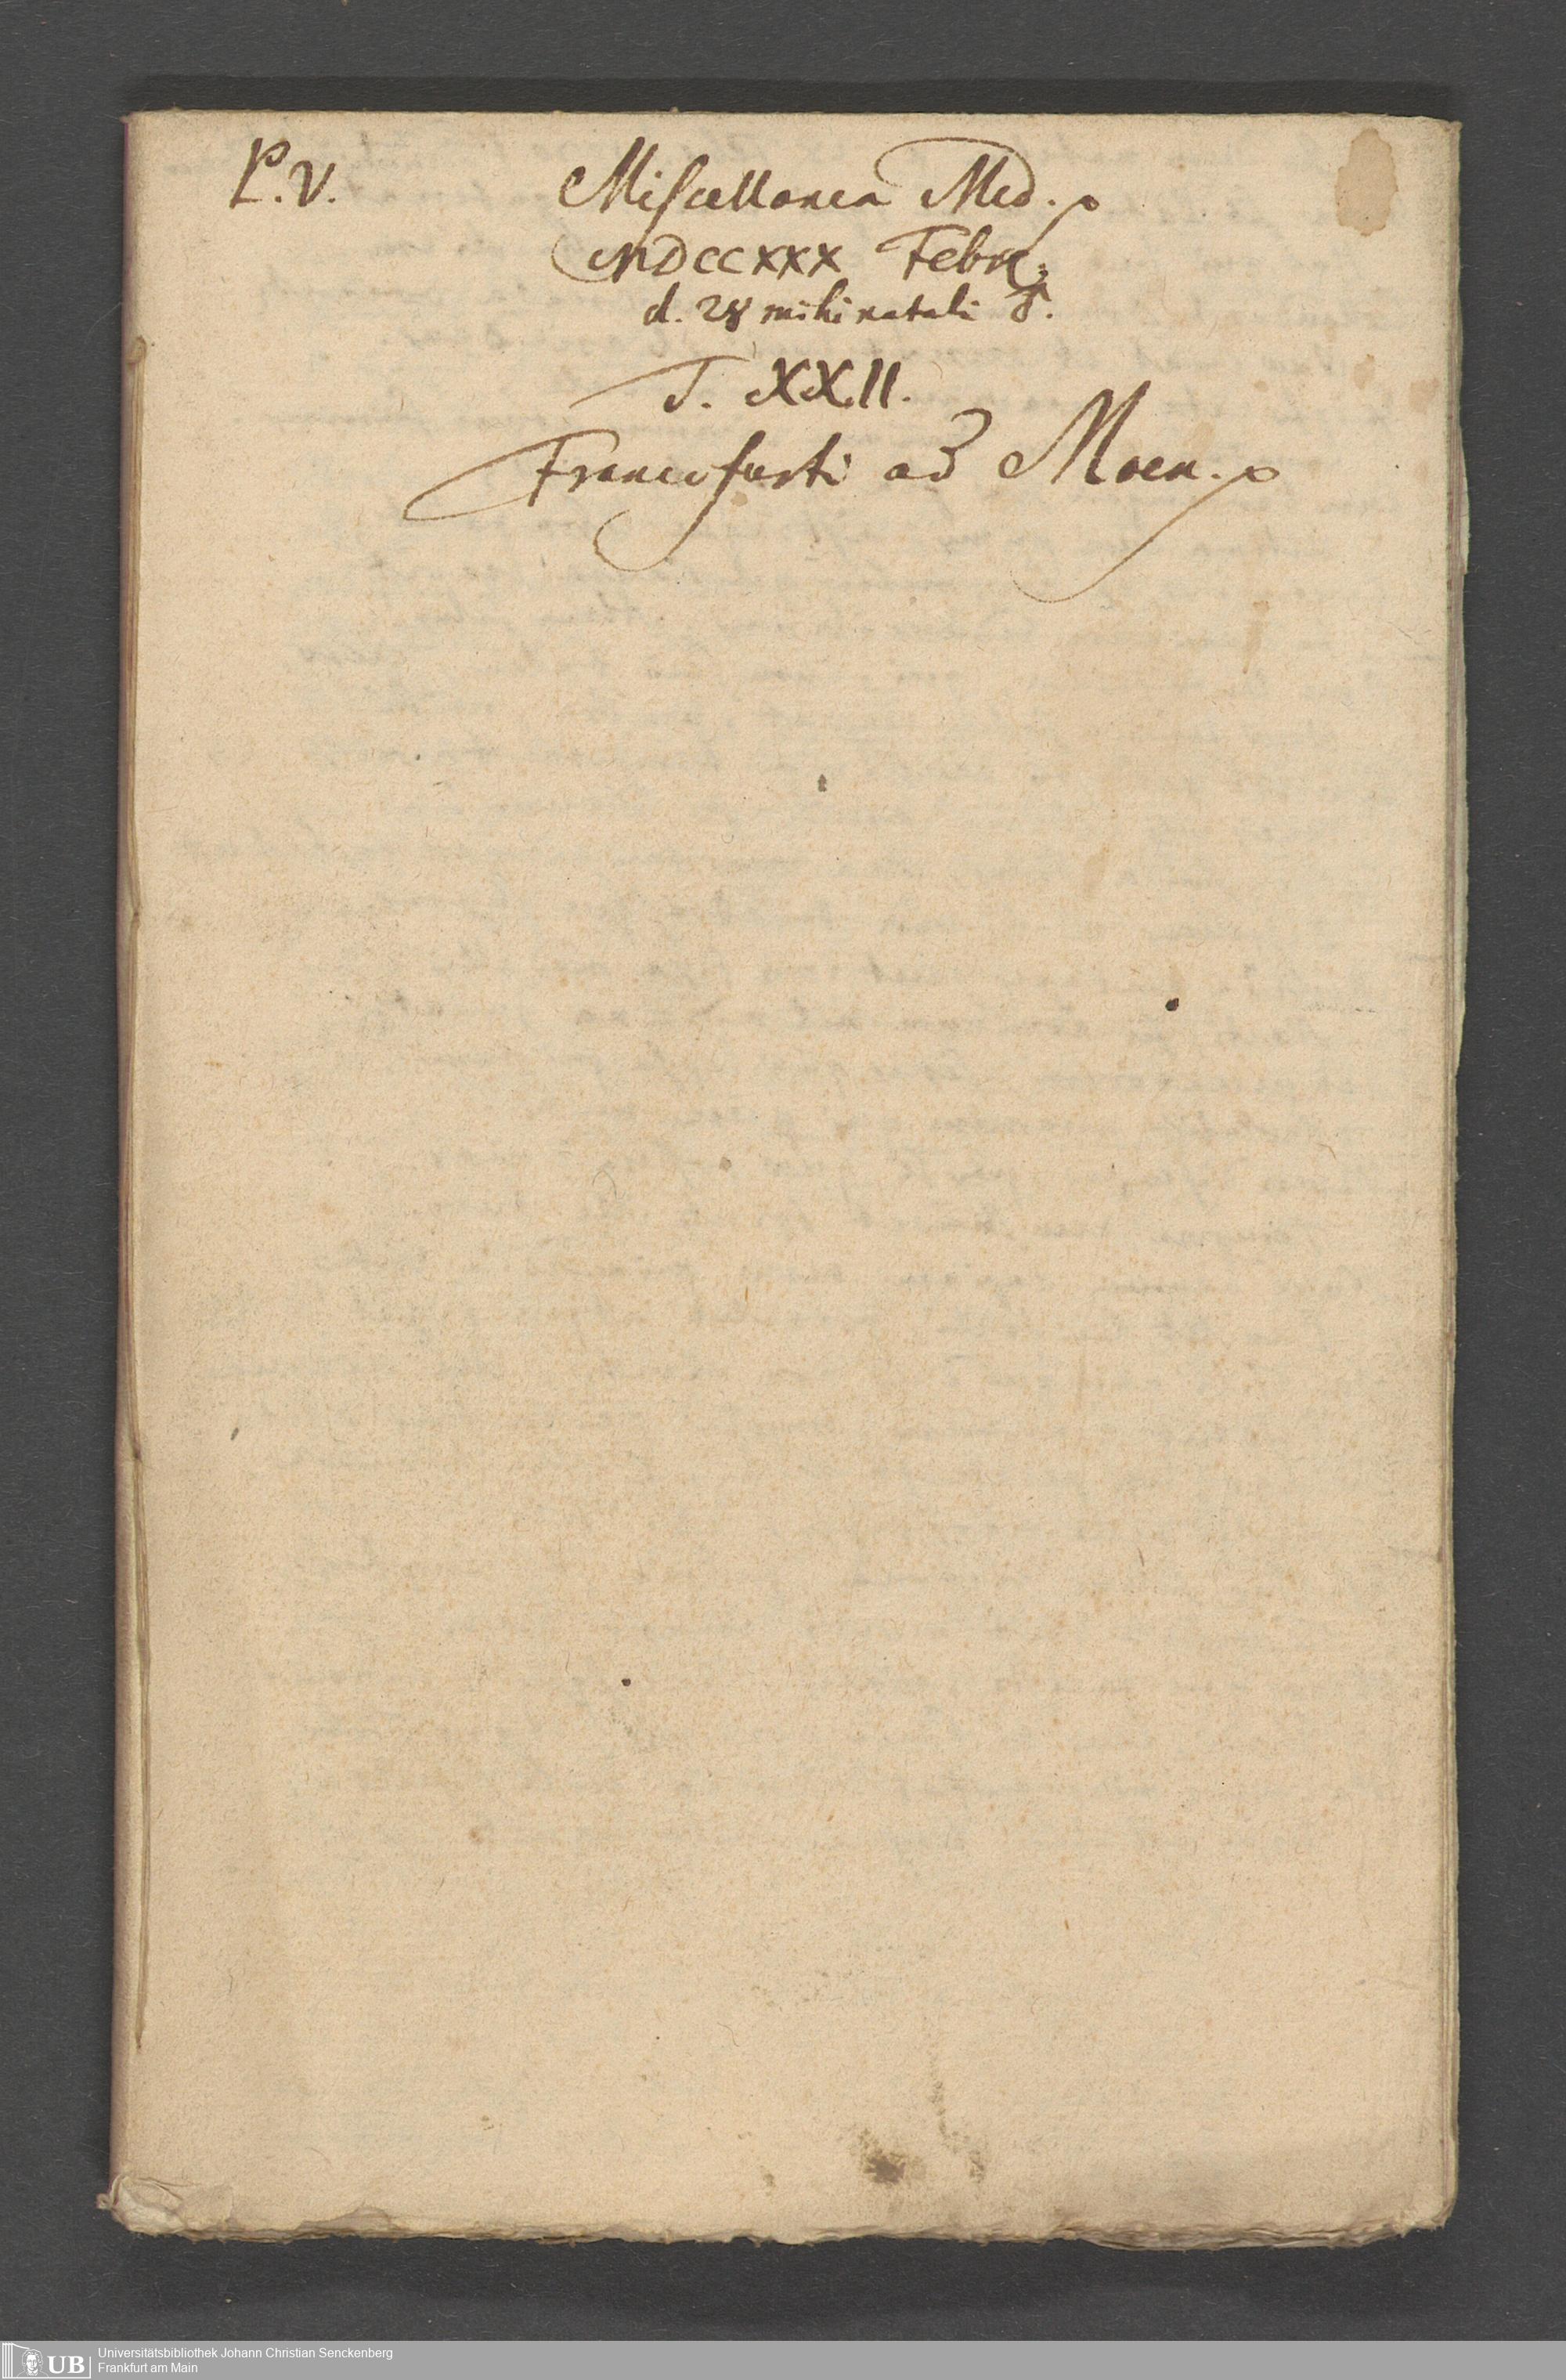 P.V.
Miscellanea Med.
MDCCXXX Febr.
d. 28 mihi natali ♂.
T. XXII.
Francofurti ad Moen.
UB
Universitätsbibliothek Johann Christian Senckenberg
Frankfurt am Main